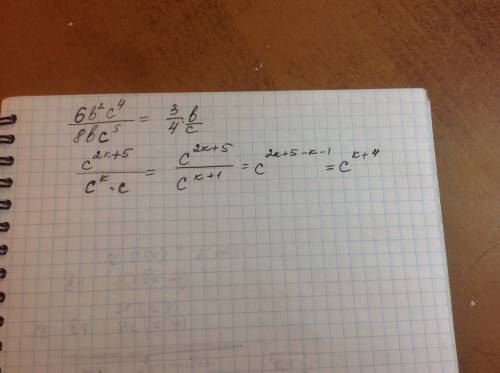 6b²c⁴/8bc⁵ = 3/4 · b/c
c²ᵏ⁺⁵/cᵏ·c = c²ᵏ⁺⁵/cᵏ⁺¹ = c²ᵏ⁺⁵⁻ᵏ⁻¹ = cᵏ⁺⁴